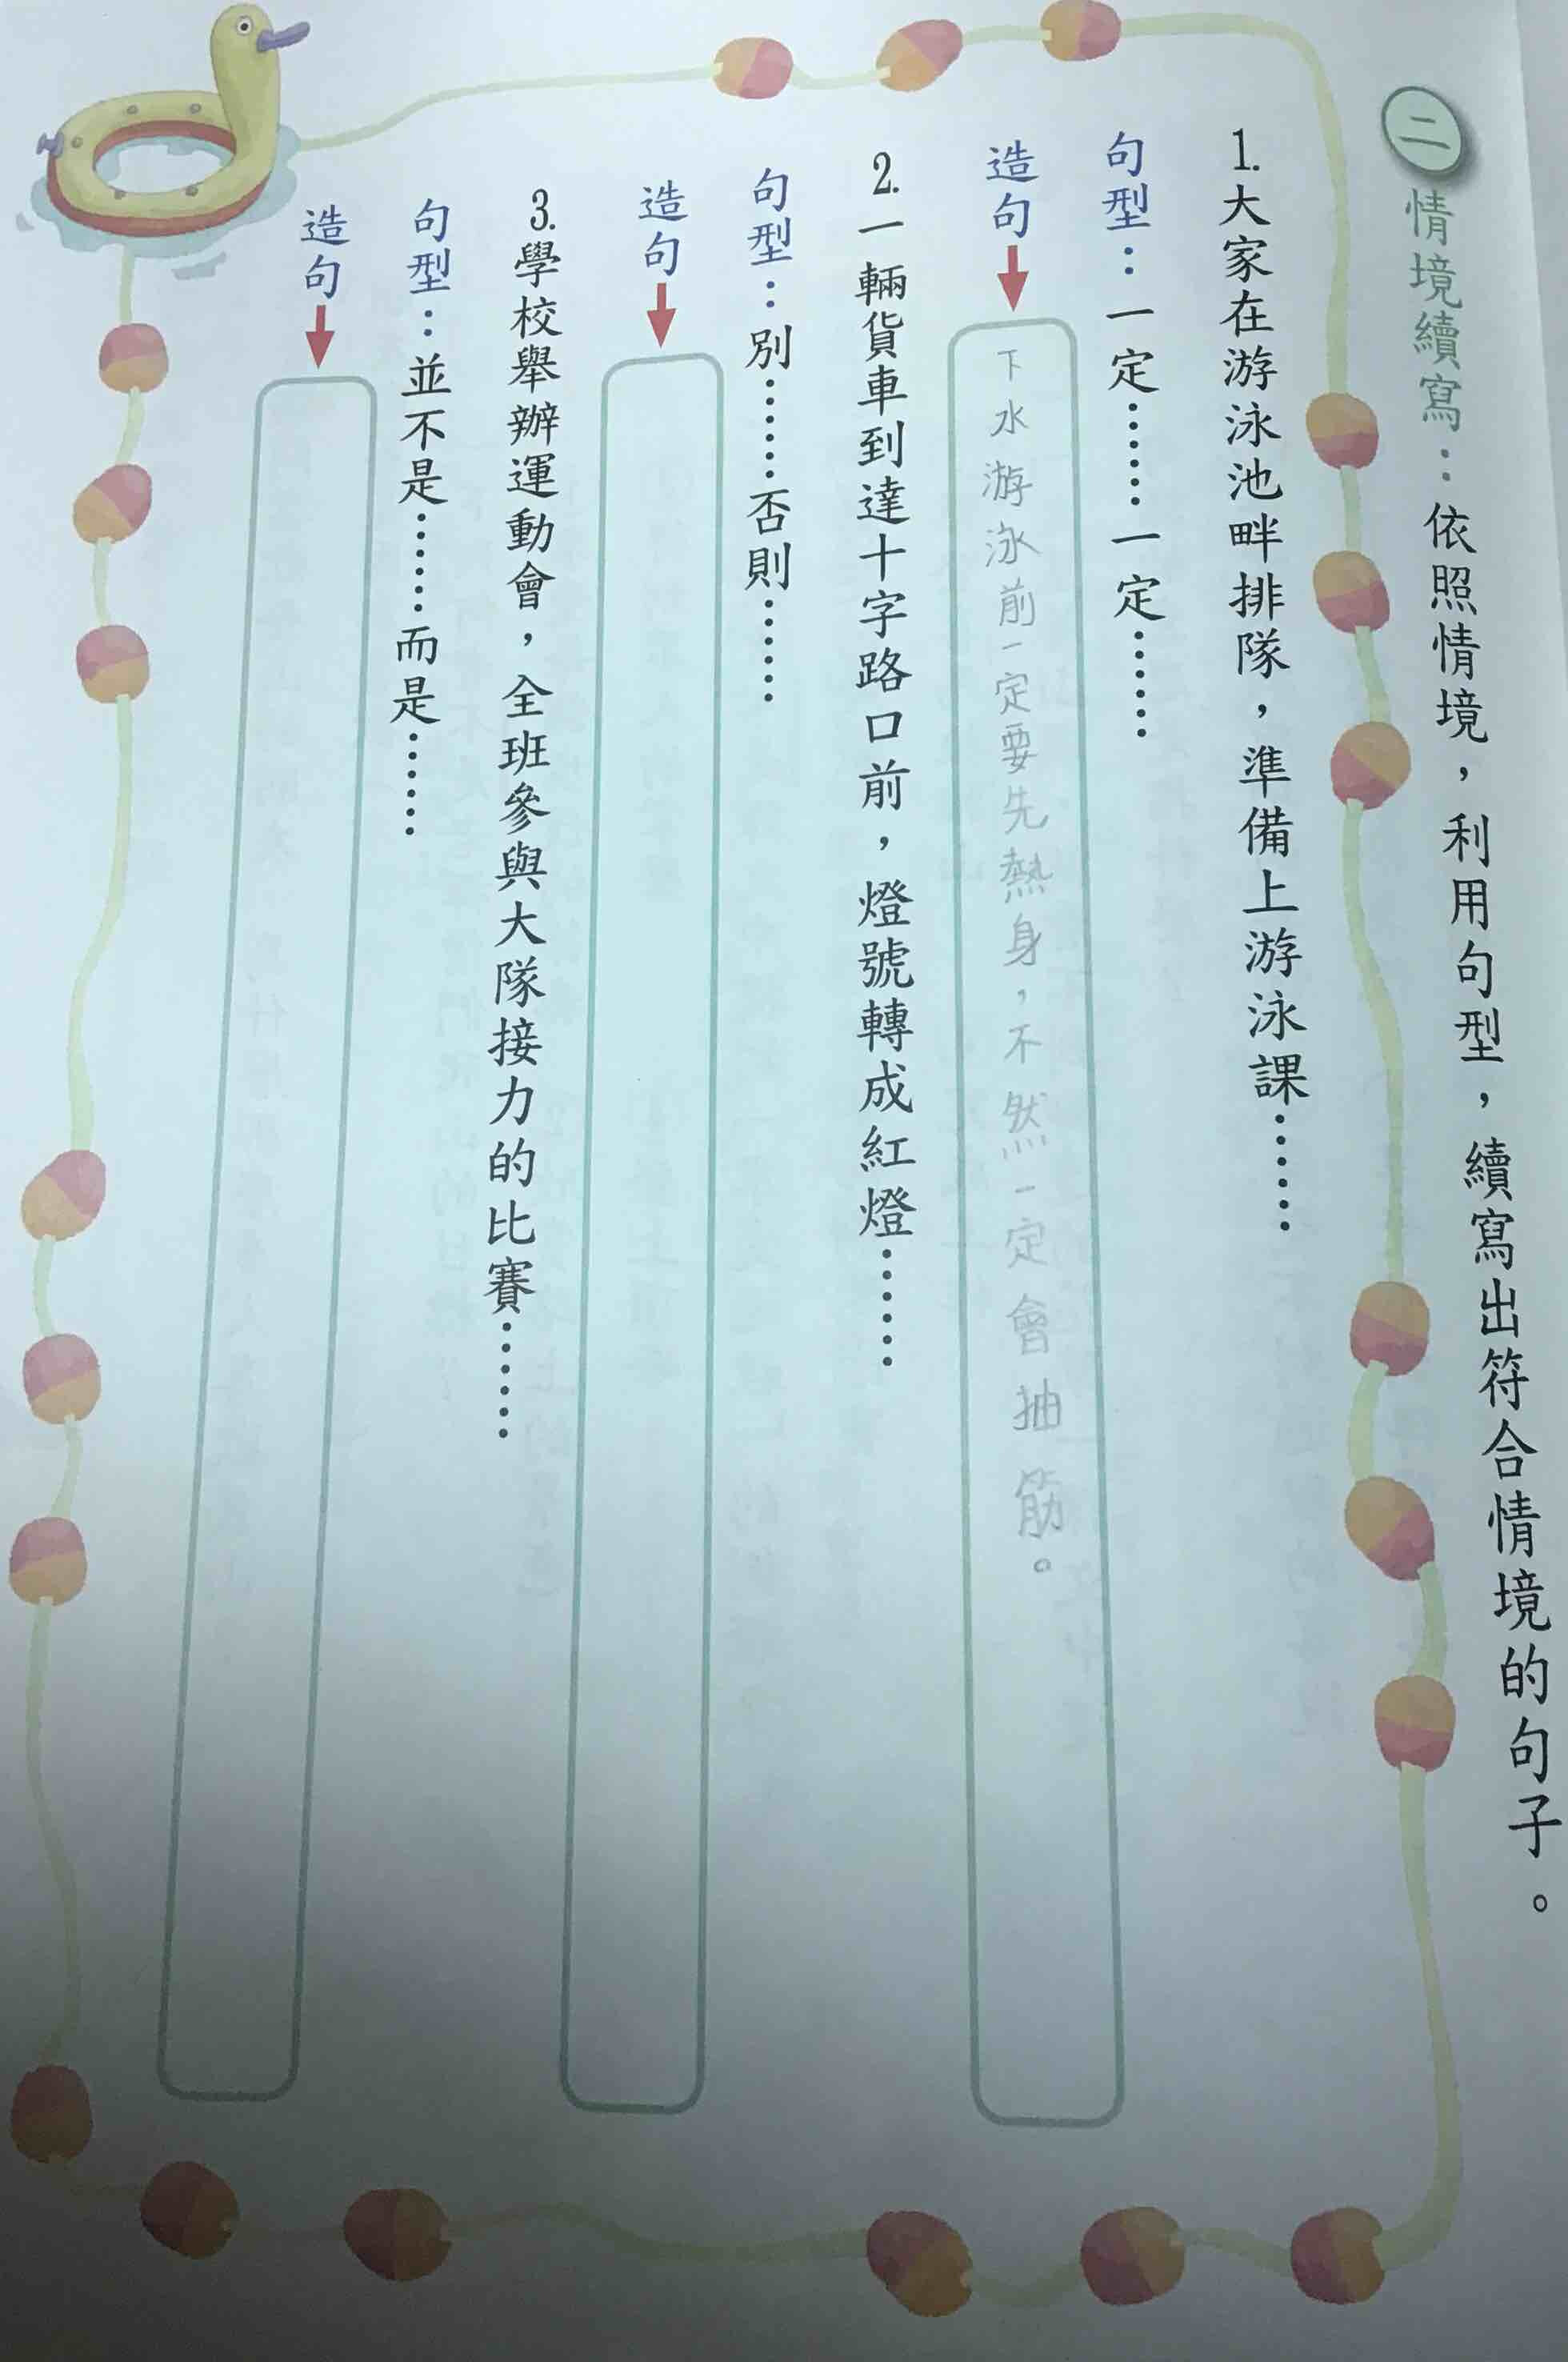 二 情境續寫：依照情境，利用句型，續寫出符合情境的句子。
1.大家在游泳池畔排隊，準備上游泳課……
句型：一定……一定……
造句
下水游泳前一定要先熱身，不然一定會抽筋。
2.一輛貨車到達十字路口前，燈號轉成紅燈……
句型：別……否則……
造句
3.學校舉辦運動會，全班參與大隊接力的比賽……
句型：並不是……而是……
造句